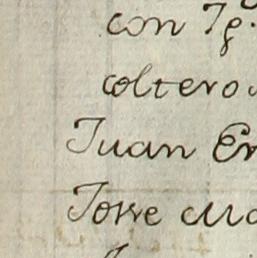 con Yg.
coltero
Juan Er
Torre Ma